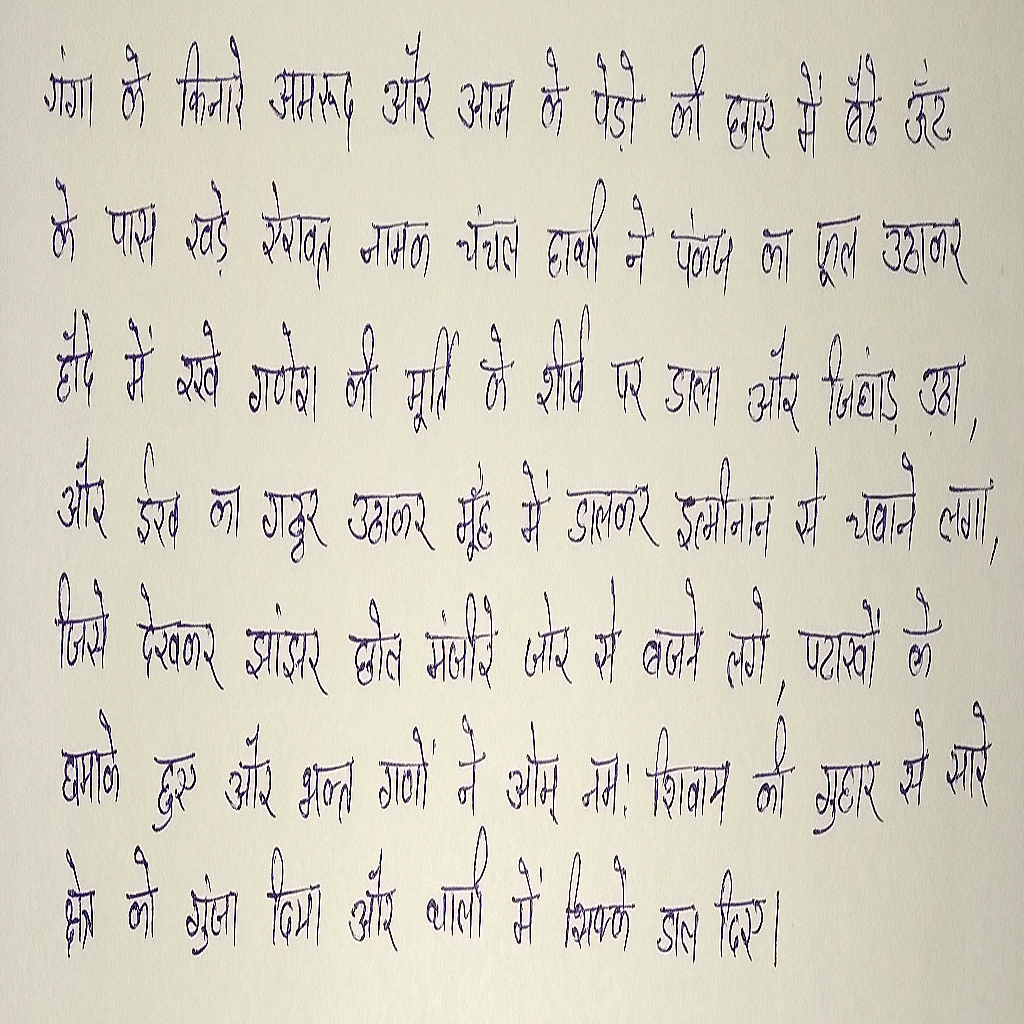 गंगा के किनारे अमरूद और आम के पेड़ो की छाए में बैठे ऊँट
के पास खड़े ऐरावत नामक चंचल हाथी ने पंकज का फूल उठाकर
हौदे में रखे गणेश की मूर्ति के शीर्ष पर डाला और चिंघाड़ उठा,
और ईख का गठ्ठर उठाकर मूँह में डालकर इत्मीनान से चबाने लगा,
जिसे देखकर झांझर ढोल मंजीरे जोर से बजने लगे, पटाखों के
धमाके हुए और भक्त गणों ने ओम् नमः शिवाय की गुहार से सारे
क्षेत्र को गुंजा दिया और थाली में सिक्के डाल दिए।